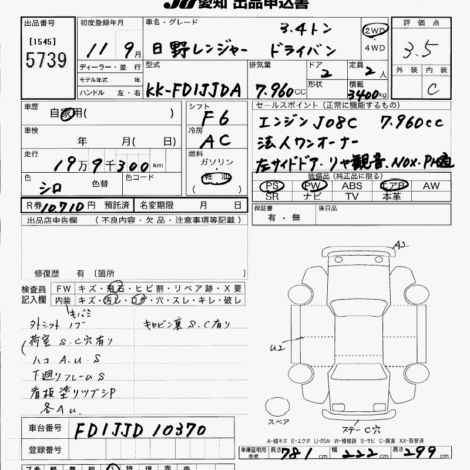 JU愛知 出品申込書
[1545]
5739
初度登録年月
11年9月
車名・グレード
3.4トン
日野レンジャー ドライバン
2WD
4WD
評価点
3.5
ディーラー・並行
モデル年式 年
ハンドル 左・右
型式
KK-FD1JJDA
排気量
7.960cc
ドア
2
形状
定員
2人
積載
3400kg
外装 内装
C
車歴
自家用( )
シフト
F6
車検
年 月( 日)
冷房
AC
走行
19万9千300km
燃料
ガソリン・
軽油
色
シロ
色替
色コード
セールスポイント(正常に機能するもの)
エンジン J08C 7.960cc
法人ワンオーナー
左サイドドア.リヤ観音.NOX.PM適
装備品(純正品に限る)
PS PW ABS エアB AW
SR ナビ TV 本革
R券 10710円 預託済
名変期限 月 日
保証書
有・無
後日品
出品店申告欄 (不具合・欠品・注意事項など記載)
修復歴 有( )箇所
検査員
記入欄
FW キズ・飛石・ヒビ割・リペア跡・X要
内装 キズ・汚レ・コゲ・穴・スレ・キレ・破レ
キバミ
キャビン裏 S.C有り
荷室 S.C穴有り
ハコ A.U S
下廻りフレームS
看板塗りツブシP
各A U
A2
U2
スペア
ステーC穴
車台番号
FD1JJD 10370
登録番号
A-線キズ E-エクボ U-凹み W-補修跡 S-サビ C-腐食 XX-取替済
車庫証明用
参考
長さ 781cm
幅 222cm
高さ 299cm